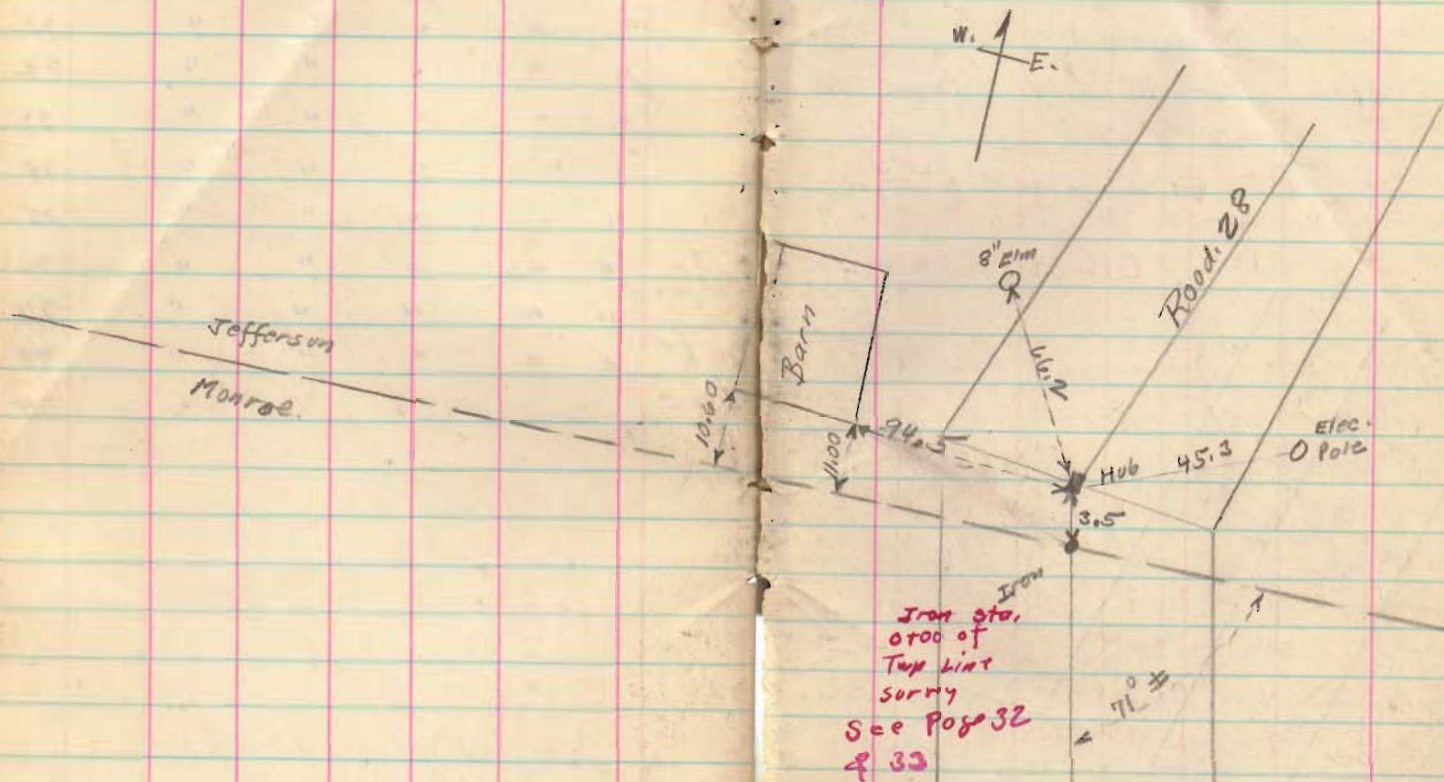 W.
E.
8" Elm
Road. 28
Jefferson
Monroe.
Barn
66.2
10.60
11.00
94.5
Hub
45.3
Elec.
Pole
3.5
Iron
Iron sta.
0+00 of
Twp Line
survy
See Page 32
& 33
71°